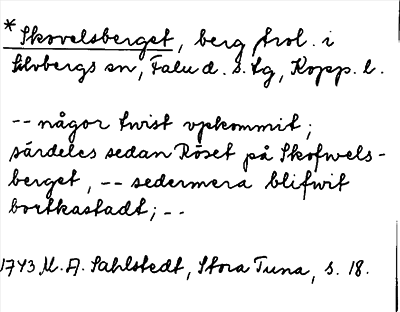 *Skovelsberget, berg trol. i
Silvbergs sn, Falu d. s. tg, Kopp. l.
-- någor twist vpkommit;
särdeles sedan Röset på Skofwels-
berget, -- sedermera blifwit
bortkastadt; --
1743 M. A. Sahlstedt, Stora Tuna, s. 18.